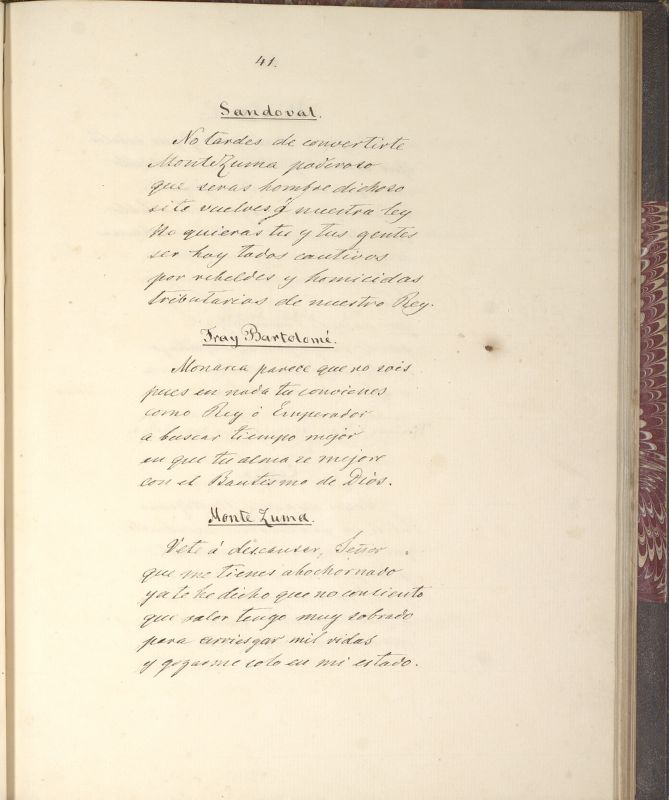 41.
Sandoval.
No tardes de convertirte
MonteZuma poderoso
que seras hombre dichoso
si te vuelves á nuestra ley
No quieras tu y tus gentes
ser hoy todos cautivos
por rebeldes y homicidas
tributarios de nuestro Rey.
Fray Bartolomé.
Monarca parece que no sois
pues en nada tu convienes
como Rey ó Emperador
a buscar tiempo mejor
en que tu alma se mejore
con el Bautismo de Dios.
Monte Zuma.
Vete á descansar, Señor
que me tienes abochornado
ya te he dicho que no consiento
que valor tengo muy sobrado
para arriesgar mil vidas
y gozarme solo en mi estado.